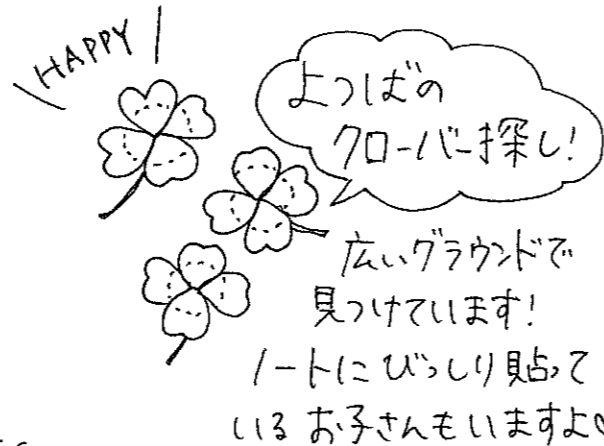 HAPPY
よつばの
クローバー探し!
広いグラウンドで
見つけています!
ノートにびっしり貼って
いるお子さんもいますよ♡